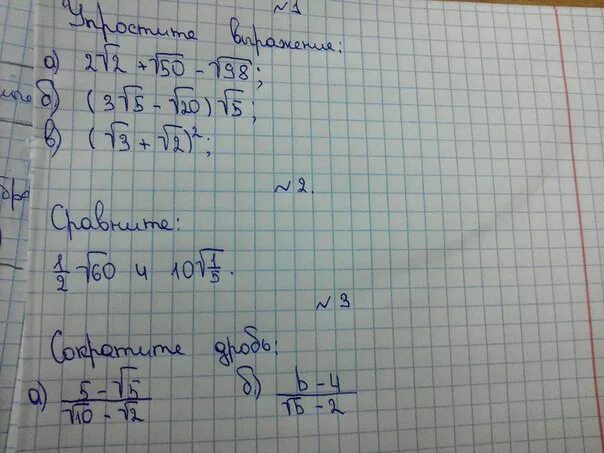 №1
Упростите выражение:
а) 2√2 + √50 - √98;
б) (3√5 - √20)√5;
в) (√3 + √2)²;
№2.
Сравните:
1/2 √60 и 10√1/5.
№3
Сократите дробь:
а) (5 - √5)/(√10 - √2) б) (b - 4)/(√b - 2)